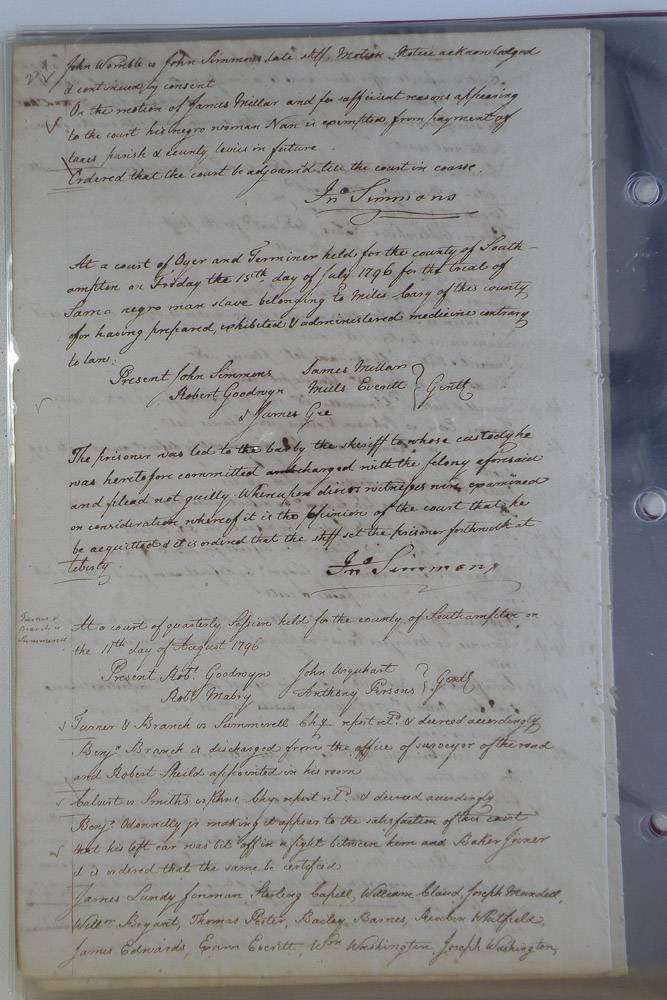 John Womble vs John Simmons late shff. Motion. Notice acknowledged
& continued by consent
On the motion of James Millar and for sufficient reasons appearing
to the court his negro woman Nan is exempted from payment of
taxes parish & county levies in future
Ordered that the court be adjourn'd till the court in course.
Jno Simmons
At a court of Oyer and Terminer held for the county of South-
ampton on Friday the 15th day of July 1796 for the trial of
Sam a negro man slave belonging to Miles Cary of this county
for having prepared, exhibited & administered medicine contrary
to law:
Present John Simmons James Millar
Robert Goodwyn Mills Everitt Gentl
& James Gee
The prisoner was led to the bar by the sheriff to whose custody he
was heretofore committed and charged with the felony aforesaid
and plead not guilty. Whereupon divers witnesses were examined
on consideration whereof it is the opinion of the court that he
be acquitted & it is ordered that the shff set the prisoner forthwith at
liberty
Jno Simmons
Turner &
Branch vs
Summerell
At a court of quarterly Session held for the county of Southampton on
the 11th day of August 1796
Present Robt. Goodwyn John Urquhart
Robt Mabry Anthony Persons Gentl
Turner & Branch vs Summerell Chy report retd. & decreed accordingly
Benjn. Branch is discharged from the office of surveyor of the road
and Robert Sheild appointed in his room
Calvert vs Smith's Chy report retd. & decreed accordingly
Benjn. Odonnelly jr making it appear to the satisfaction of this court
that his left ear was bit off in a fight between him and Baker Joiner
it is ordered that the same be certified
James Lundy foreman Sterling Capell, William Claud, Joseph Mandell,
Willm Bryant, Thomas Porter, Bailey Barnes, Reuben Whitfield,
James Edwards, Evern Everitt, Wm Washington, Joseph Washington,